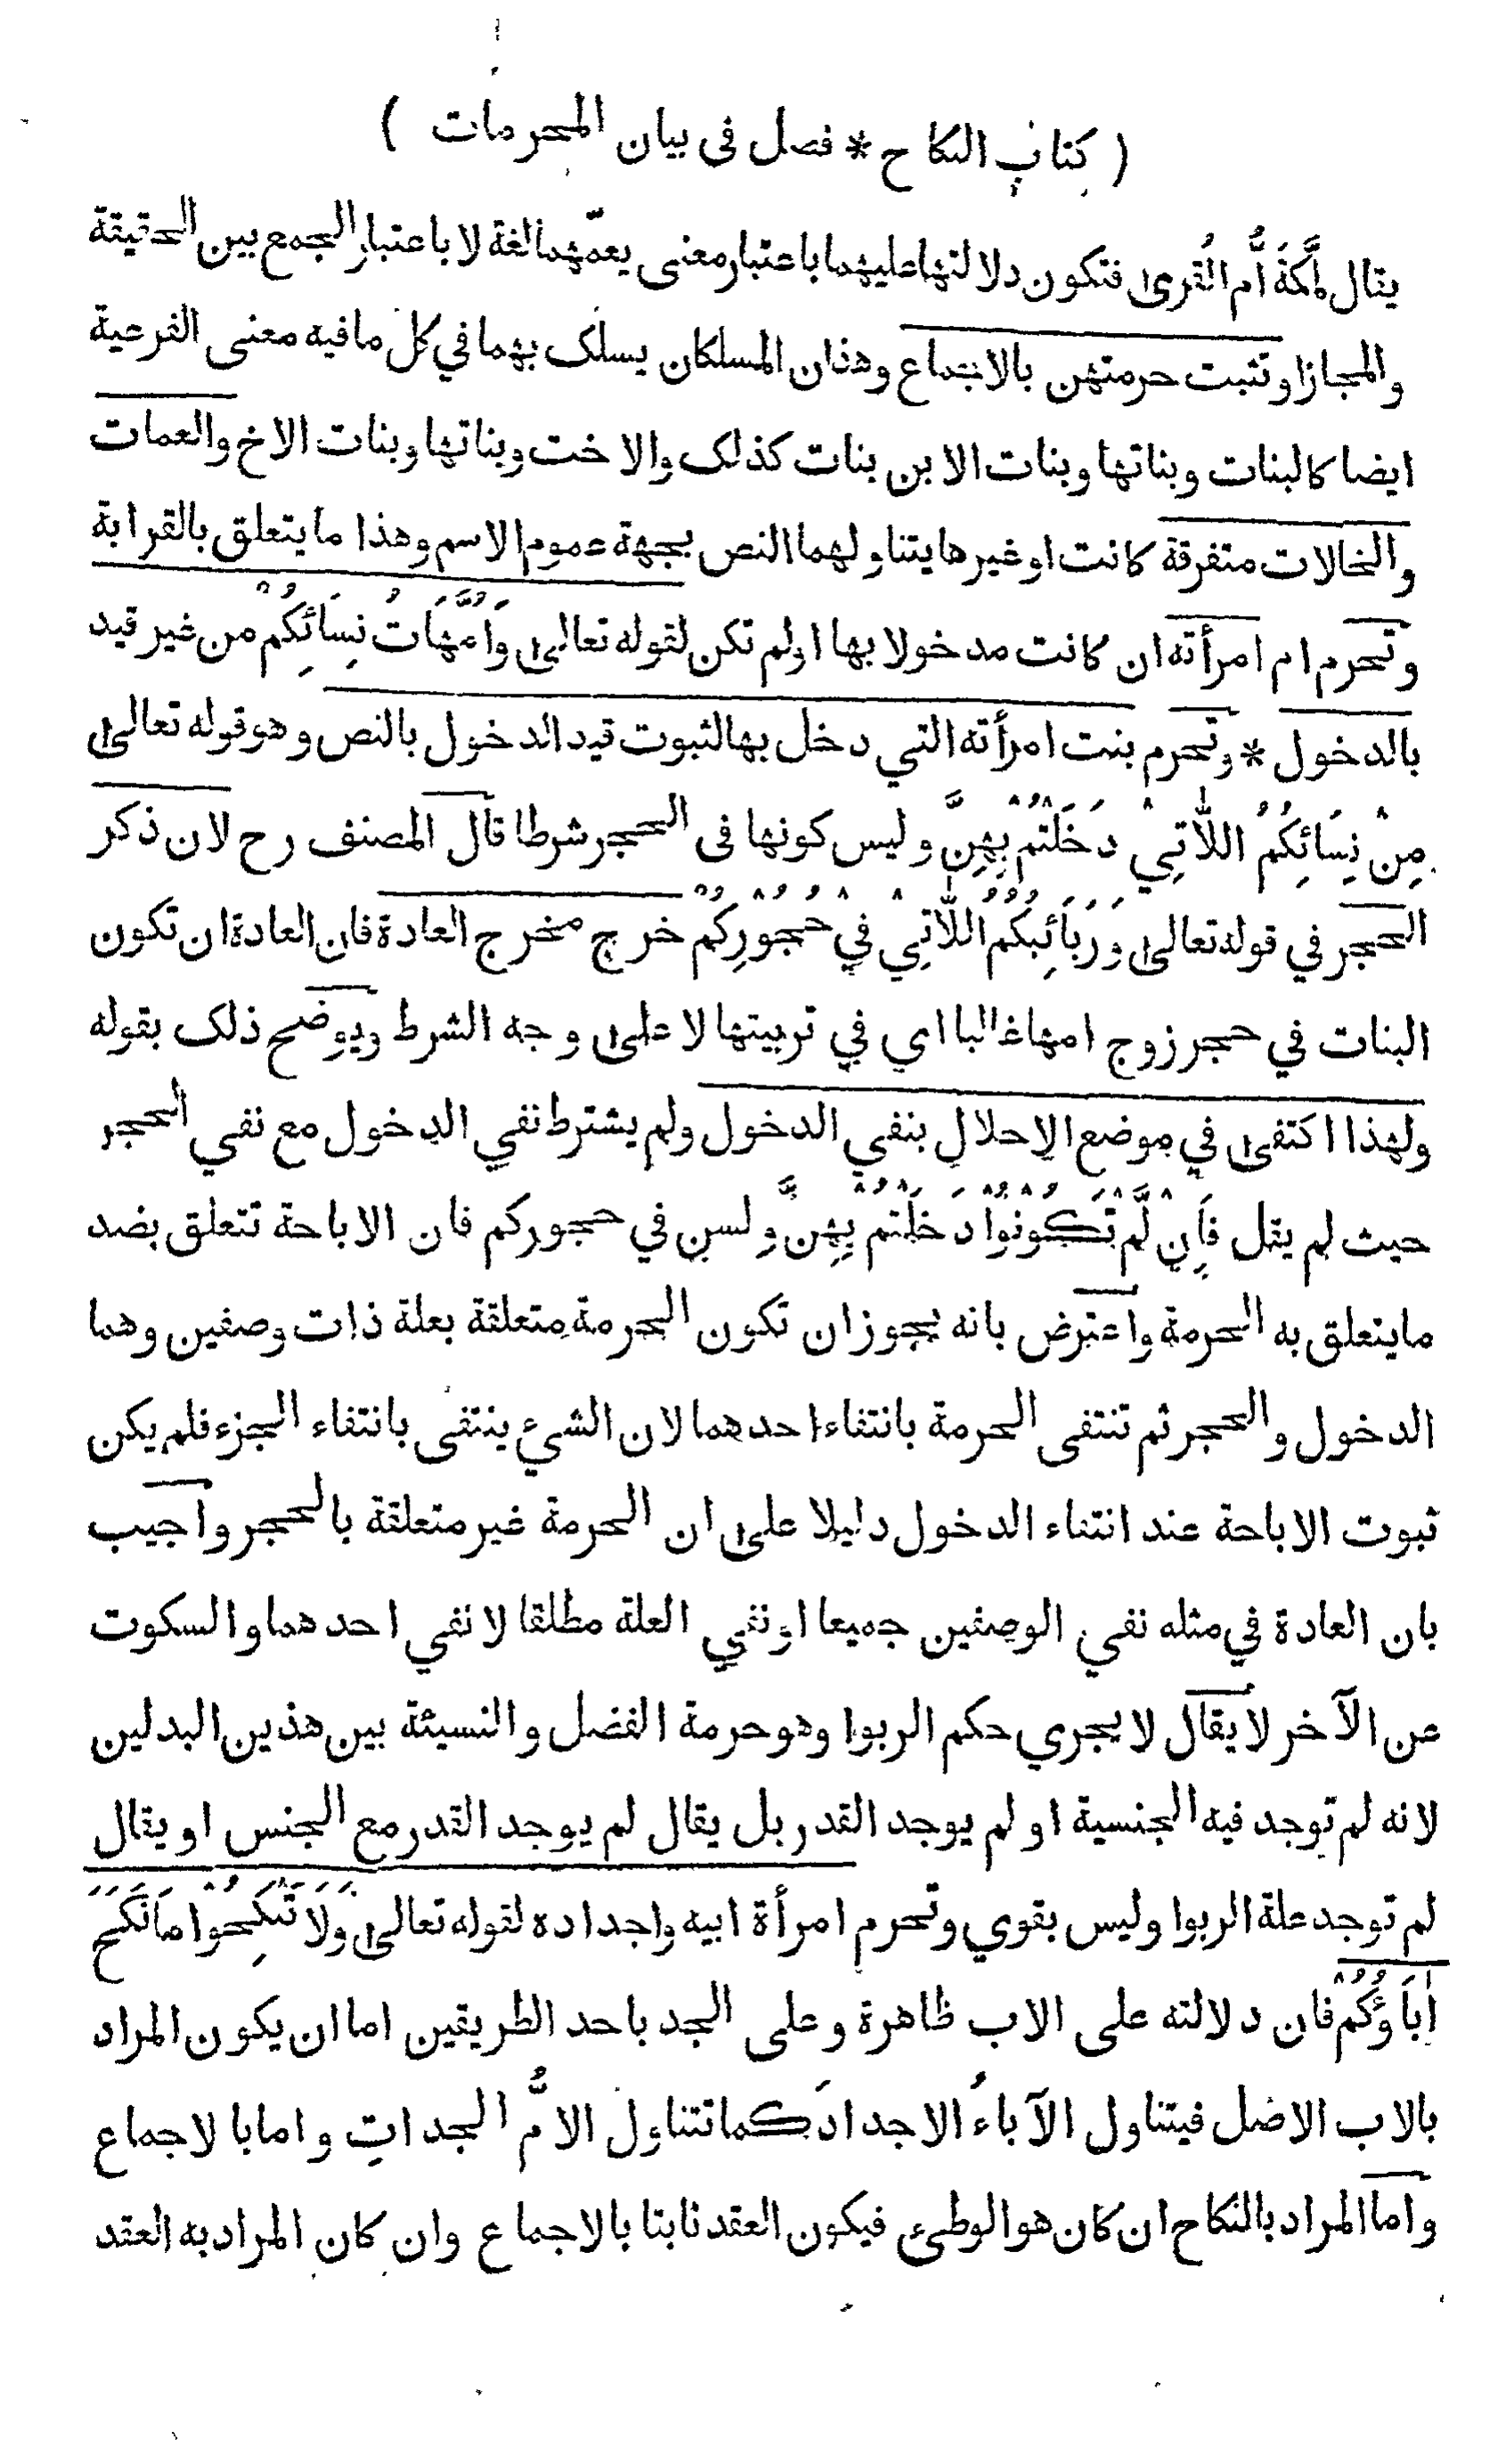 ( كتاب النكاح * فصل فى بيان المحرمات )
يقال لمكَّةَ أُمّ القُرى فتكون دلالتها عليهما باعتبار معنى يعمّهما لغة لا باعتبار الجمع بين الحقيقة
والمجاز او تثبت حرمتهن بالاجماع وهذان المسلكان يسلك بهما في كل ما فيه معنى الفرعية
ايضا كالبنات وبناتها وبنات الابن بنات كذلك والاخت وبناتها وبنات الاخ والعمات
والخالات متفرقة كانت او غيرها يتناولهما النص بجهة عموم الاسم وهذا ما يتعلق بالقرابة
وتحرم ام امرأته ان كانت مدخولا بها او لم تكن لقوله تعالى وَاُمَّهَاتُ نِسَائِكُمْ من غير قيد
بالدخول * وتحرم بنت امرأته التي دخل بها لثبوت قيد الدخول بالنص وهو قوله تعالى
مِنْ نِسَائِكُمُ اللّٰاتِيْ دَخَلْتُمْ بِهِنَّ وليس كونها فى الحجر شرطا قال المصنف رح لان ذكر
الحجر في قوله تعالى وَرَبَائِبُكُمُ اللّٰاتِيْ فِيْ حُجُوْرِكُمْ خرج مخرج العادة فان العادة ان تكون
البنات في حجر زوج امها غالبا اي في تربيتها لا على وجه الشرط ويوضح ذلك بقوله
ولهذا اكتفى في موضع الاحلال بنفي الدخول ولم يشترط نفي الدخول مع نفي الحجر
حيث لم يقل فَاِنْ لَّمْ تَكُوْنُوْا دَخَلْتُمْ بِهِنَّ ولسن في حجوركم فان الاباحة تتعلق بضد
ما يتعلق به الحرمة واعترض بانه يجوز ان تكون الحرمة متعلقة بعلة ذات وصفين وهما
الدخول والحجر ثم تنتفى الحرمة بانتفاء احدهما لان الشيء ينتفى بانتفاء الجزء فلم يكن
ثبوت الاباحة عند انتفاء الدخول دليلا على ان الحرمة غير متعلقة بالحجر واجيب
بان العادة في مثله نفي الوصفين جميعا او نفي العلة مطلقا لا نفي احدهما والسكوت
عن الآخر لا يقال لا يجري حكم الربوا وهو حرمة الفضل والنسيئة بين هذين البدلين
لانه لم توجد فيه الجنسية او لم يوجد القدر بل يقال لم يوجد القدر مع الجنس او يقال
لم توجد علة الربوا وليس بقوي وتحرم امرأة ابيه واجداده لقوله تعالى وَلَا تَنْكِحُوْا مَا نَكَحَ
اٰبَاؤُكُمْ فان دلالته على الاب ظاهرة وعلى الجد باحد الطريقين اما ان يكون المراد
بالاب الاصل فيتناول الآباءُ الاجدادَ كما تتناول الامُّ الجداتِ واما بالاجماع
واما المراد بالنكاح ان كان هو الوطئ فيكون العقد ثابتا بالاجماع وان كان المراد به العقد